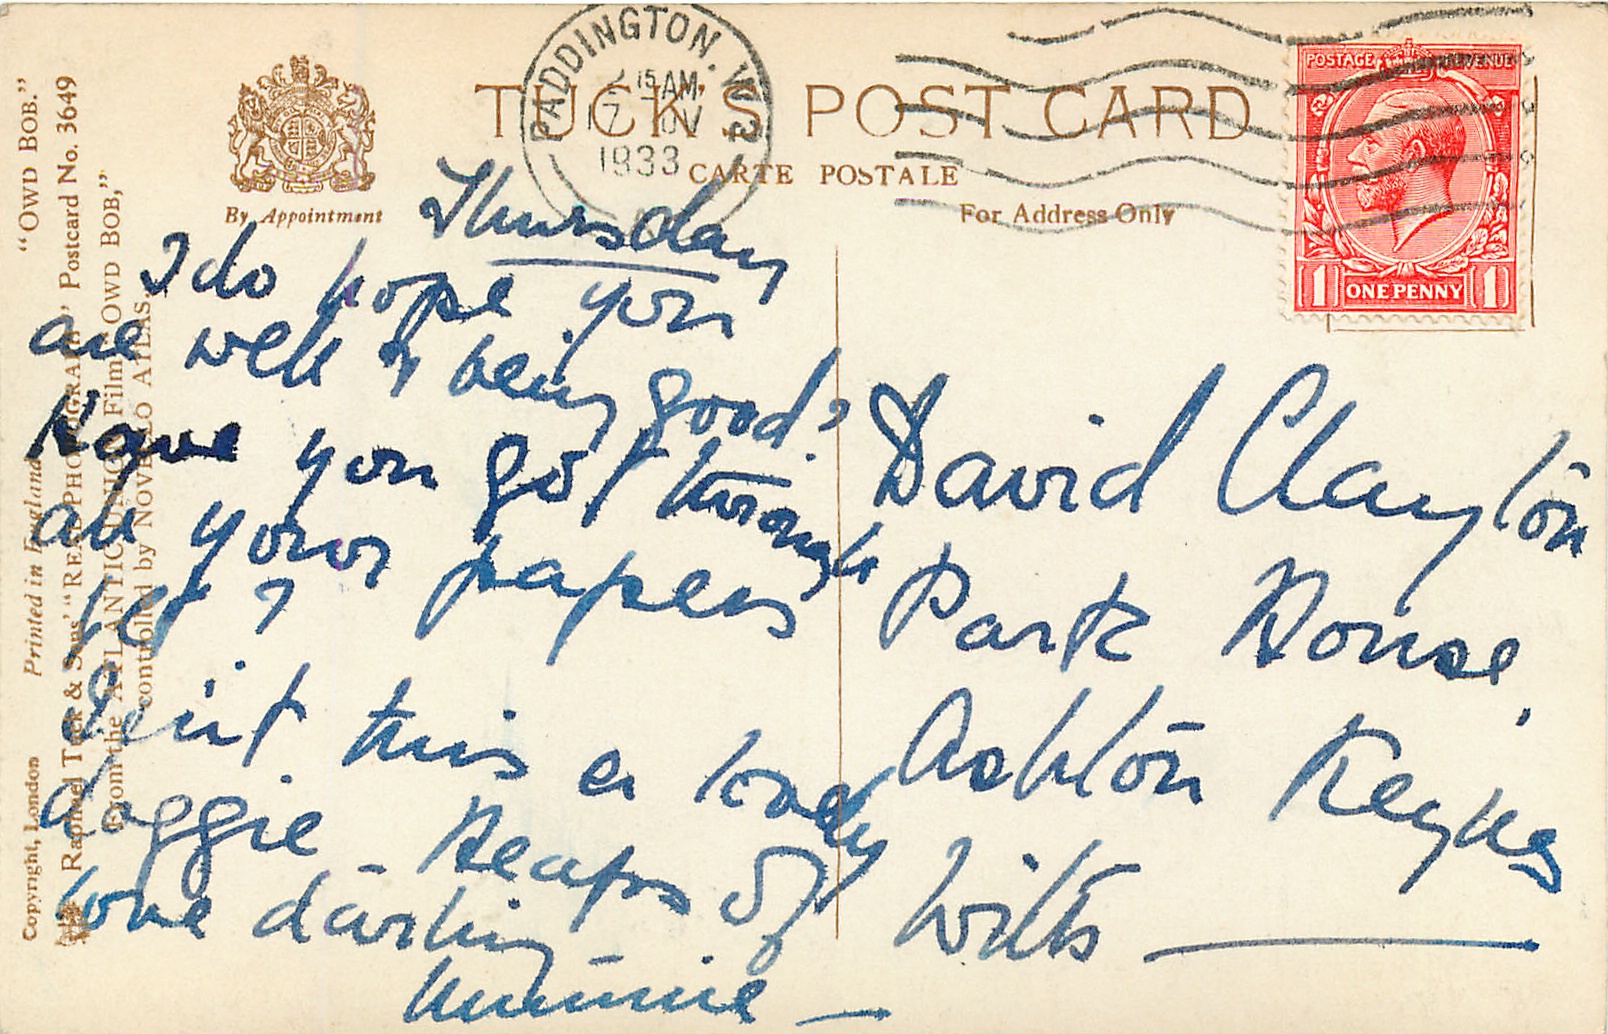 TUCK'S POST CARD
CARTE POSTALE
For Address Only
By Appointment
PADDINGTON. W.2
2 15 AM
17 NOV
1933
POSTAGE REVENUE
1 ONE PENNY 1
"OWD BOB."
Raphael Tuck & Sons' "REAL PHOTOGRAPH" Postcard No. 3649
From the ATLANTIC UNION Film "OWD BOB,"
controlled by NOVELLO ATLAS.
Copyright, London
Printed in England
Thursday
I do hope you
are well & being good?
Have you got through
all your papers
yet?
Isn't this a lovely
doggie - Heaps of
love darling
Mummie -
David Clayton
Park House,
Ashton Keynes
Wilts